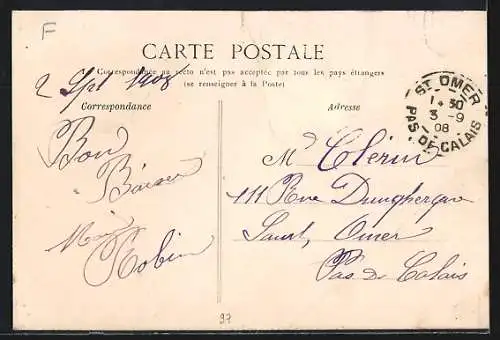 F
CARTE POSTALE
Correspondance au recto n'est pas acceptée par tous les pays étrangers
(se renseigner à la Poste)
2 Spt 1908
Correspondance
Adresse
Bon
Baiser
Robin
Mr Clérin
111 Rue Dunquerque
Saint, Omer
Pas de Calais
ST OMER
14 30
3 -9
08
PAS-DE-CALAIS
97